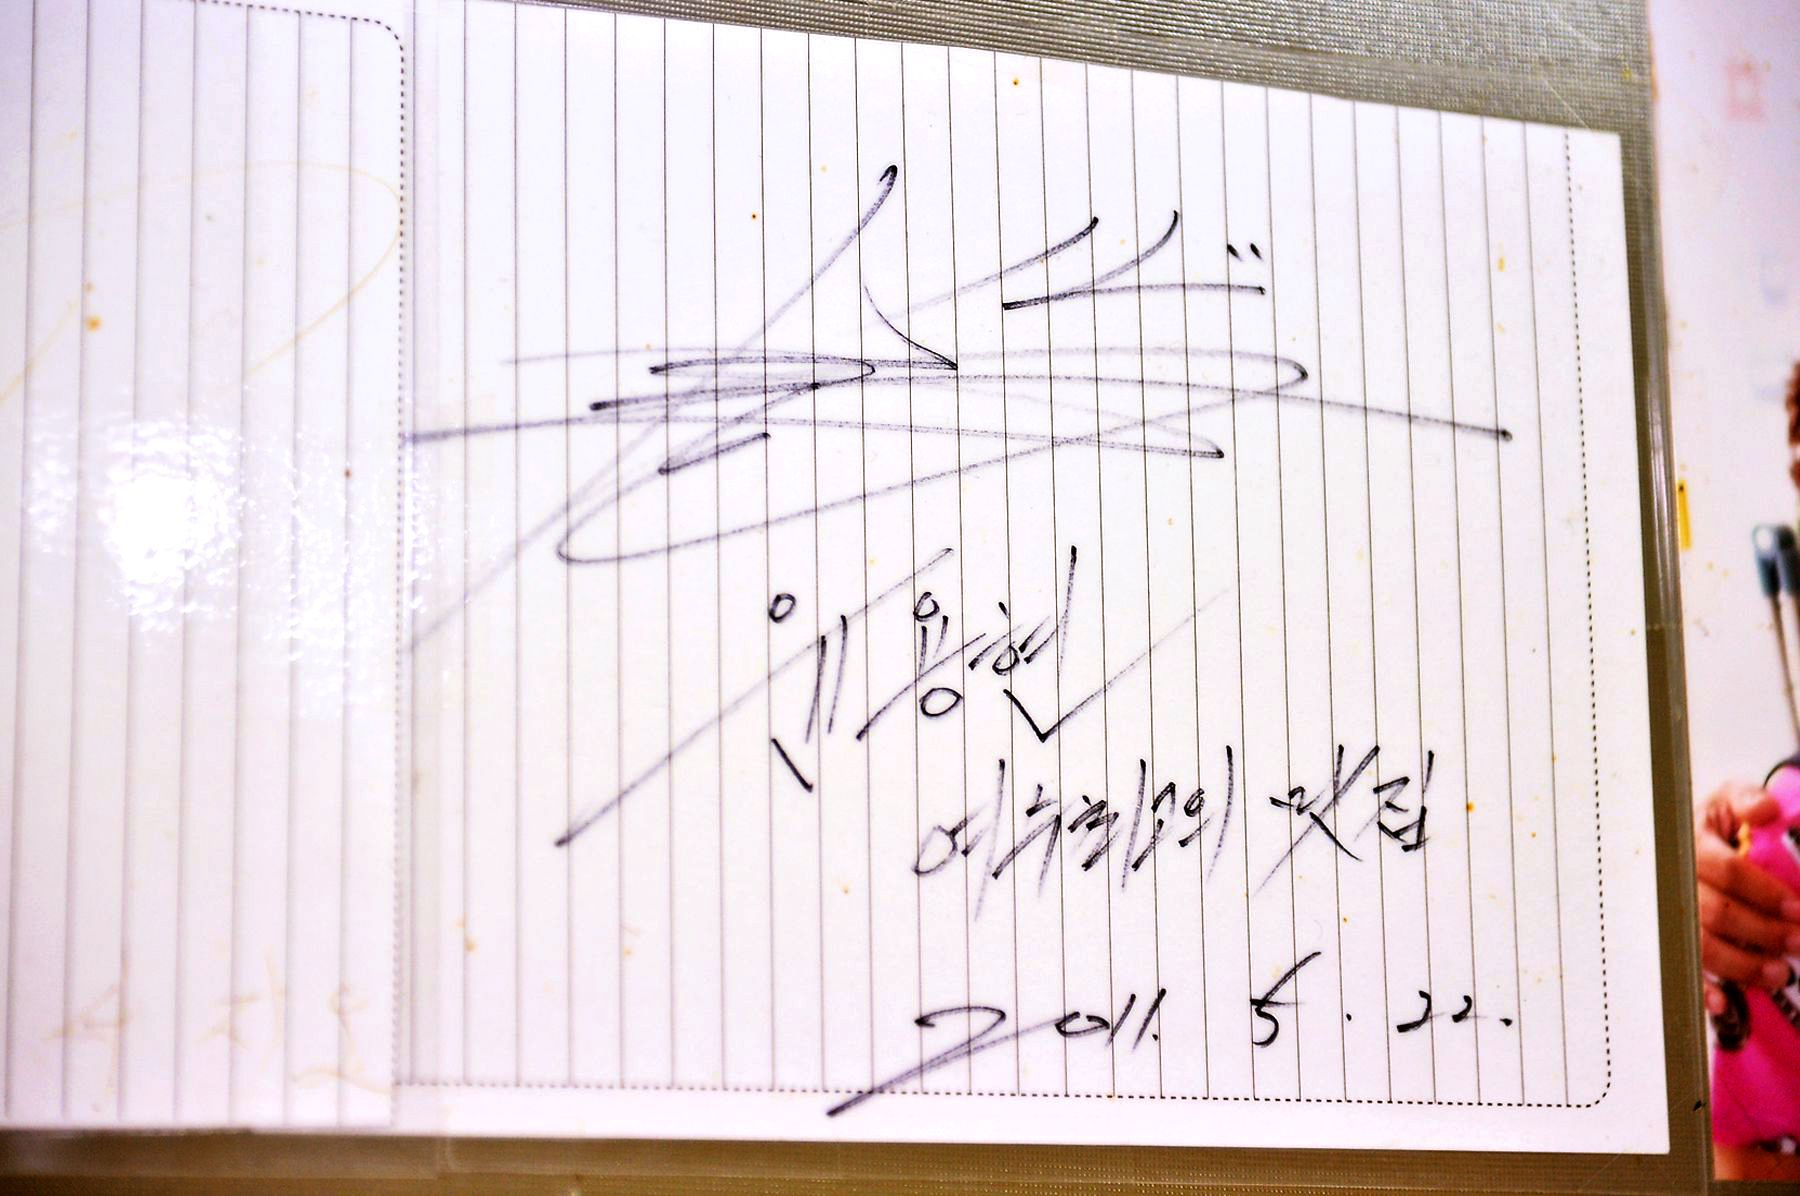 윤용현
여수최고의 맛집
2011. 5. 22.